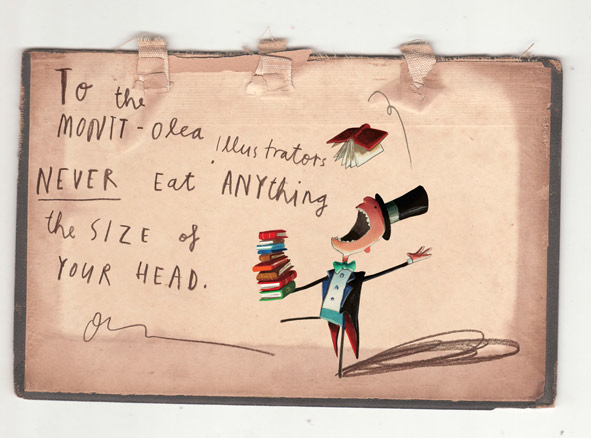 To the
MONTT-Olea illustrators
NEVER Eat ANYthing
the SIZE of
YOUR HEAD.